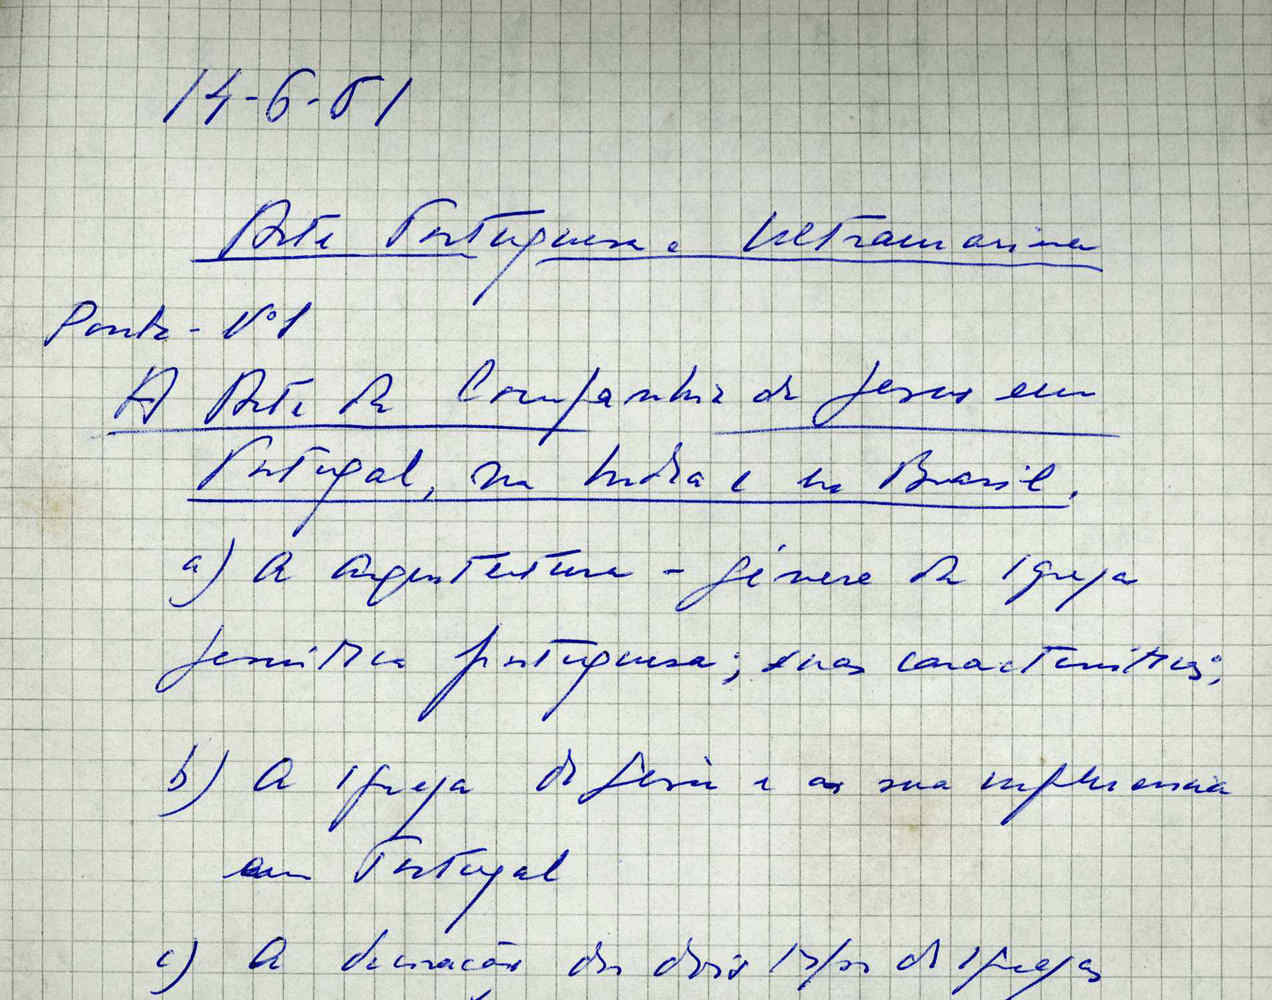 14-6-61
Arte Portuguesa e Ultramarina
Ponto - Nº1
A Arte da Companhia de Jesus em
Portugal, na India e no Brasil.
a) A arquitectura - género da Igreja
Jesuitica portuguesa; suas caracteristicas;
b) A igreja de Jesus e a sua influencia
em Portugal
c) A decoração dos dois tipos de Igrejas